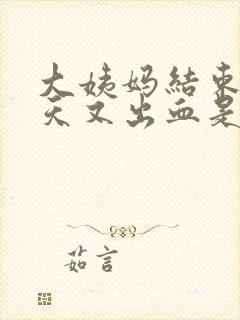 大姨妈结束
天又出血是
茹言